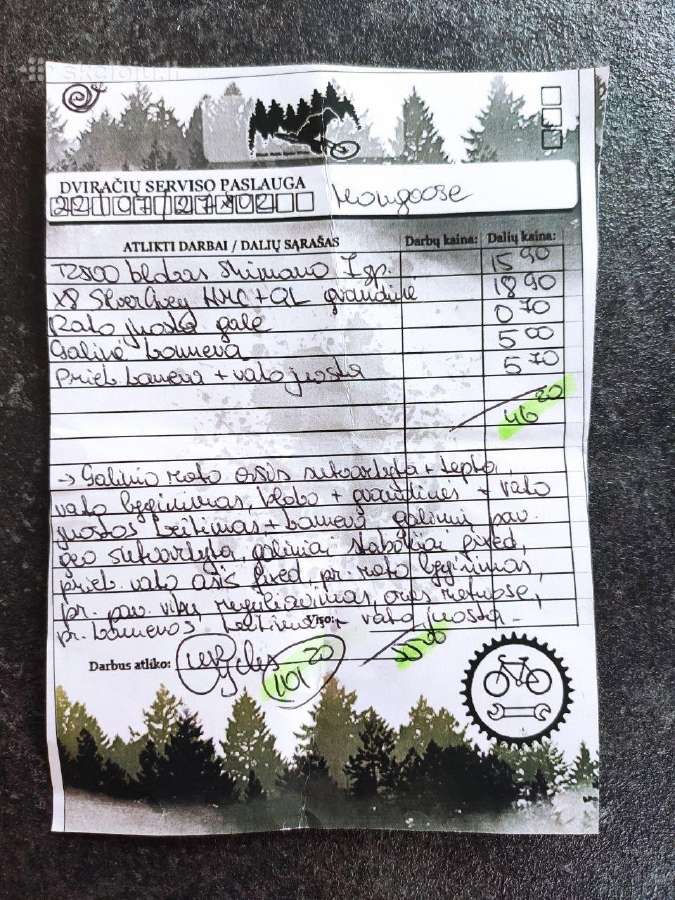 skelbiu.lt
DVIRAČIŲ SERVISO PASLAUGA
22/07/27 Mongoose
ATLIKTI DARBAI / DALIŲ SĄRAŠAS Darbų kaina: Dalių kaina:
TZ500 blokas Shimano 7 gp. 15 90
X8 Silver Grey KMC + QL grandinė 18 90
Rato juosta gale 0 70
Galinė kamera 5 00
Priek. kamera + rato juosta 5 70
46 20
→ Galinio rato ašis sutvarkyta + tepta,
rato lyginimas, bloko + grandinės + rato
juostos keitimas + kamera, galinių pav.
geo sutvarkyta, galiniai stabdžiai fixed,
priek. rato ašis fixed, pr. rato lyginimas,
pr. pav. virkų reguliavimas, oras ratuose,
pr. kameros keitimas + rato juosta -
Viso:
Darbus atliko: 101 20 55 00